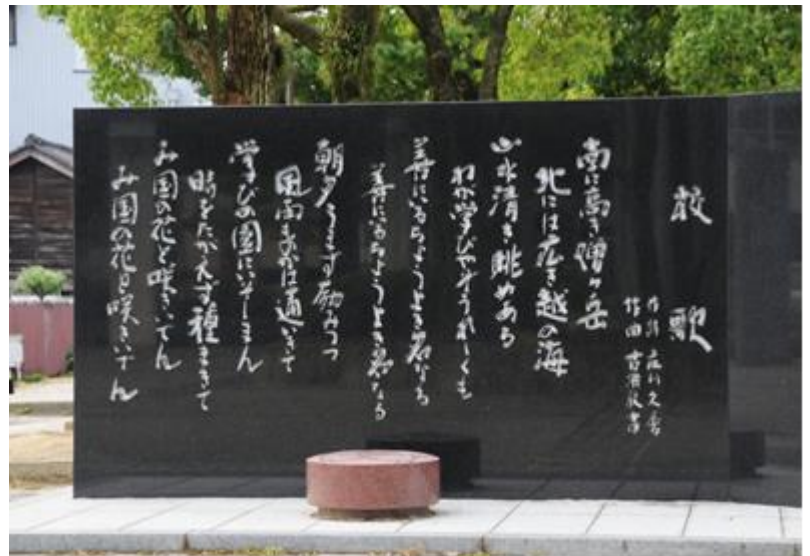 校歌
作詩
作曲
南に高き僧ヶ岳
北には広き越の海
山水清き眺めある
わが学びやぞうれしくも
善にいるちょうよき名なる
善にいるちょうよき名なる
朝夕うまず励みつつ
風雨をおかし通いきて
学びの園にいそしまん
時をたがえず種まきて
み国の花と咲きいでん
み国の花と咲きいでん